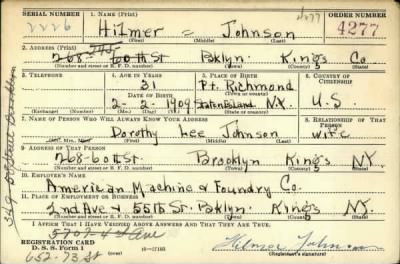 SERIAL NUMBER 1. NAME (Print) ORDER NUMBER
2226 Hilmer = Johnson 4277
(First) (Middle) (Last)
2. ADDRESS (Print)
268 60th St. Bklyn. Kings Co.
(Number and street or R. F. D. number) (Town) (County) (State)
3. TELEPHONE 4. AGE IN YEARS 5. PLACE OF BIRTH 6. COUNTRY OF CITIZENSHIP
31 Pt. Richmond
DATE OF BIRTH
2-2-1909 Staten Island N.Y. U.S.
(Exchange) (Number) (Mo.) (Day) (Yr.) (Town or county) (State or country)
7. NAME OF PERSON WHO WILL ALWAYS KNOW YOUR ADDRESS 8. RELATIONSHIP OF THAT PERSON
Dorothy Lee Johnson wife
(Mr., Mrs., Miss) (First) (Middle) (Last)
9. ADDRESS OF THAT PERSON
268-60th St. Brooklyn Kings NY.
(Number and street or R. F. D. number) (Town) (County) (State)
10. EMPLOYER'S NAME
American Machine & Foundry Co.
11. PLACE OF EMPLOYMENT OR BUSINESS
2nd Ave & 55th St. Bklyn. Kings NY.
(Number and street or R. F. D. number) (Town) (County) (State)
I AFFIRM THAT I HAVE VERIFIED ABOVE ANSWERS AND THAT THEY ARE TRUE.
5707-4th Ave
REGISTRATION CARD
D. S. S. Form 1 16-17105 Hilmer Johnson
(over) (Registrant's signature)
652-73 St